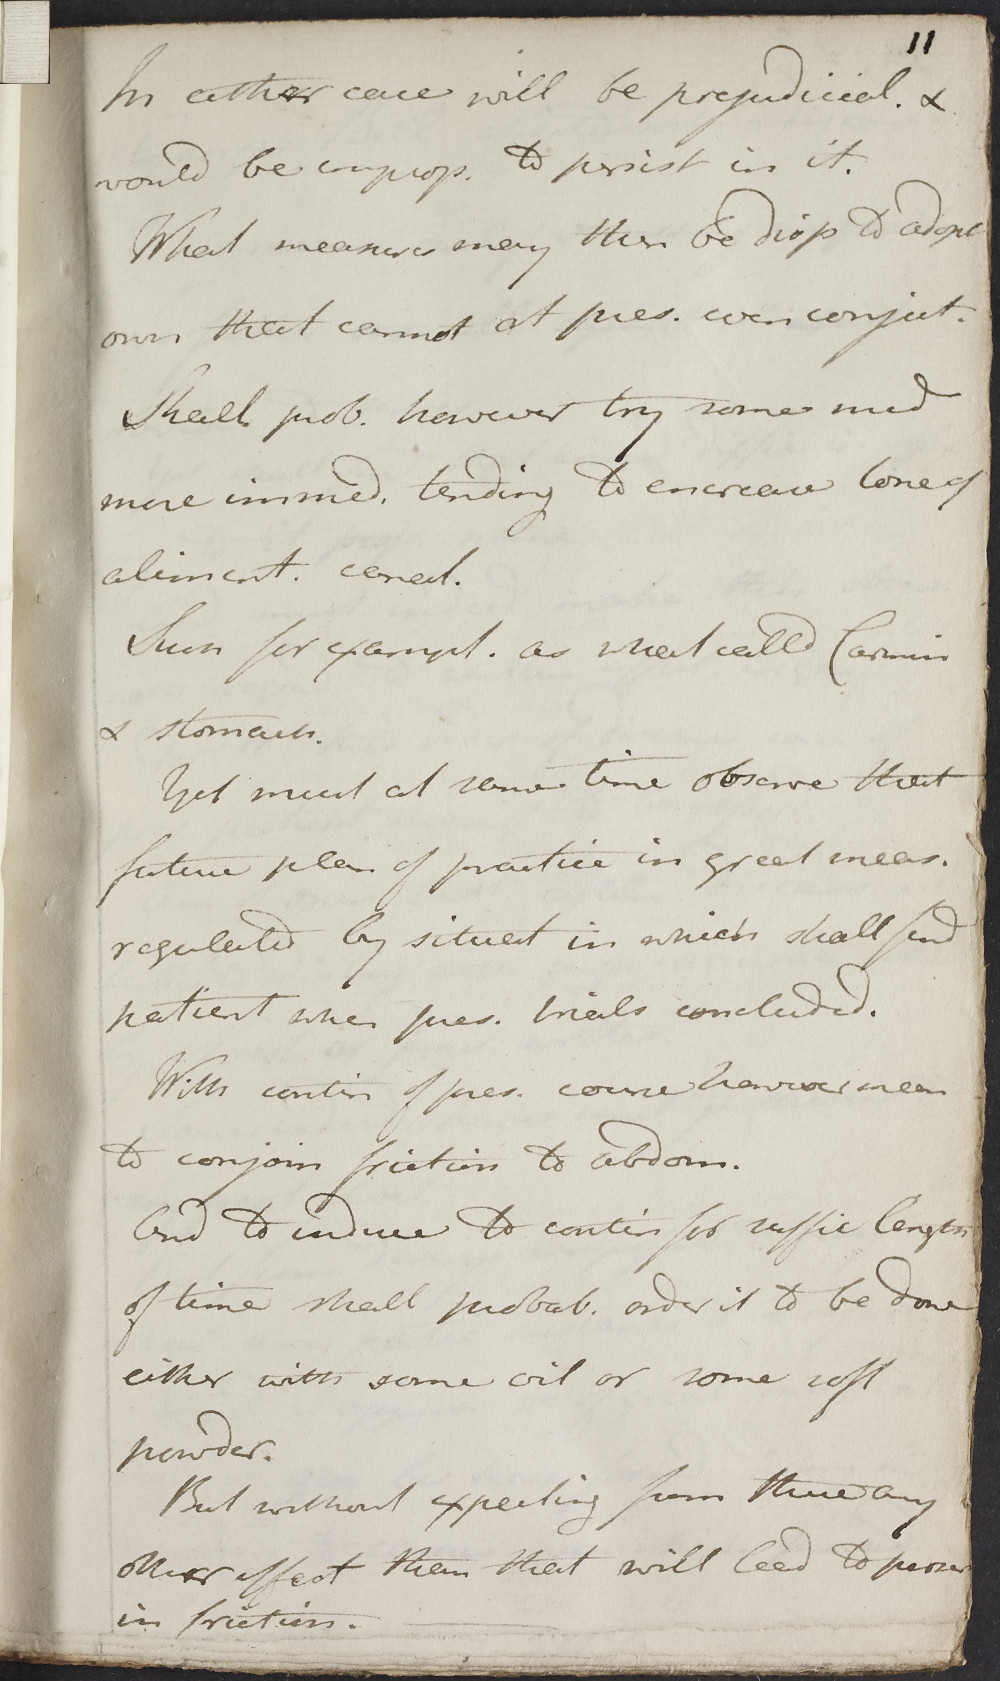 11
In either case will be prejudicial. &
would be improp. to persist in it.
What measures may then be disp to adopt
own that cannot at pres. even conject.
Shall prob. however try some med
more immed. tending to encrease tone of
aliment. canal.
Such for exampl. as what calld Carmin
& stomach.
Yet must at same time observe that
future plan of practice in great meas.
regulated by situat in which shall find
patient when pres. trials concluded.
With contin of pres. course however mean
to conjoin friction to abdom.
And to induce to contin for suffic length
of time shall probab. order it to be done
either with some oil or some soft
powder.
But without expecting from these any
other effect than that will lead to persev
in friction.